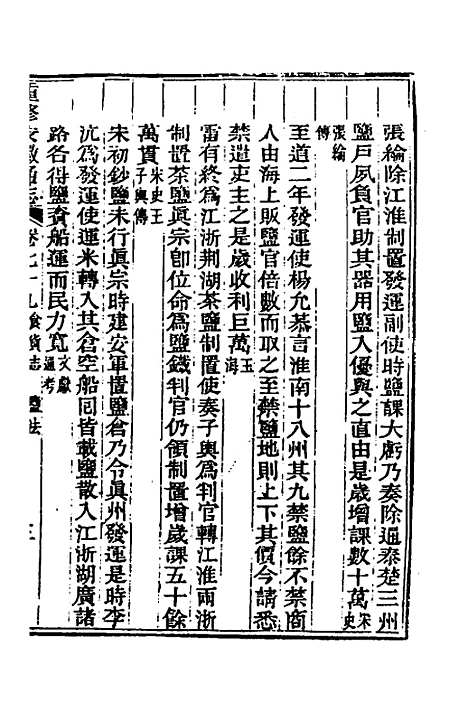 張綸除江淮制置發運副使時鹽課大虧乃奏除通泰楚三州
鹽戶夙負官助其器用鹽入優與之直由是歲增課數十萬宋史
張綸傳
至道二年發運使楊允恭言淮南十八州其九禁鹽餘不禁商
人由海上販鹽官倍數而取之至禁鹽地則上下其價今請悉
禁遣吏主之是歲收利巨萬玉海
雷有終爲江浙荆湖茶鹽制置使奏子輿爲判官轉江淮兩浙
制置茶鹽眞宗卽位命爲鹽鐵判官仍領制置增歲課五十餘
萬貫宋史王子輿傳
宋初鈔鹽未行眞宗時建安軍置鹽倉乃令眞州發運是時李
沆爲發運使運米轉入其倉空船囘皆載鹽散入江浙湖廣諸
路各得鹽資船運而民力寬文獻通考
重修安徽通志 卷七十九食貨志 鹽法 三